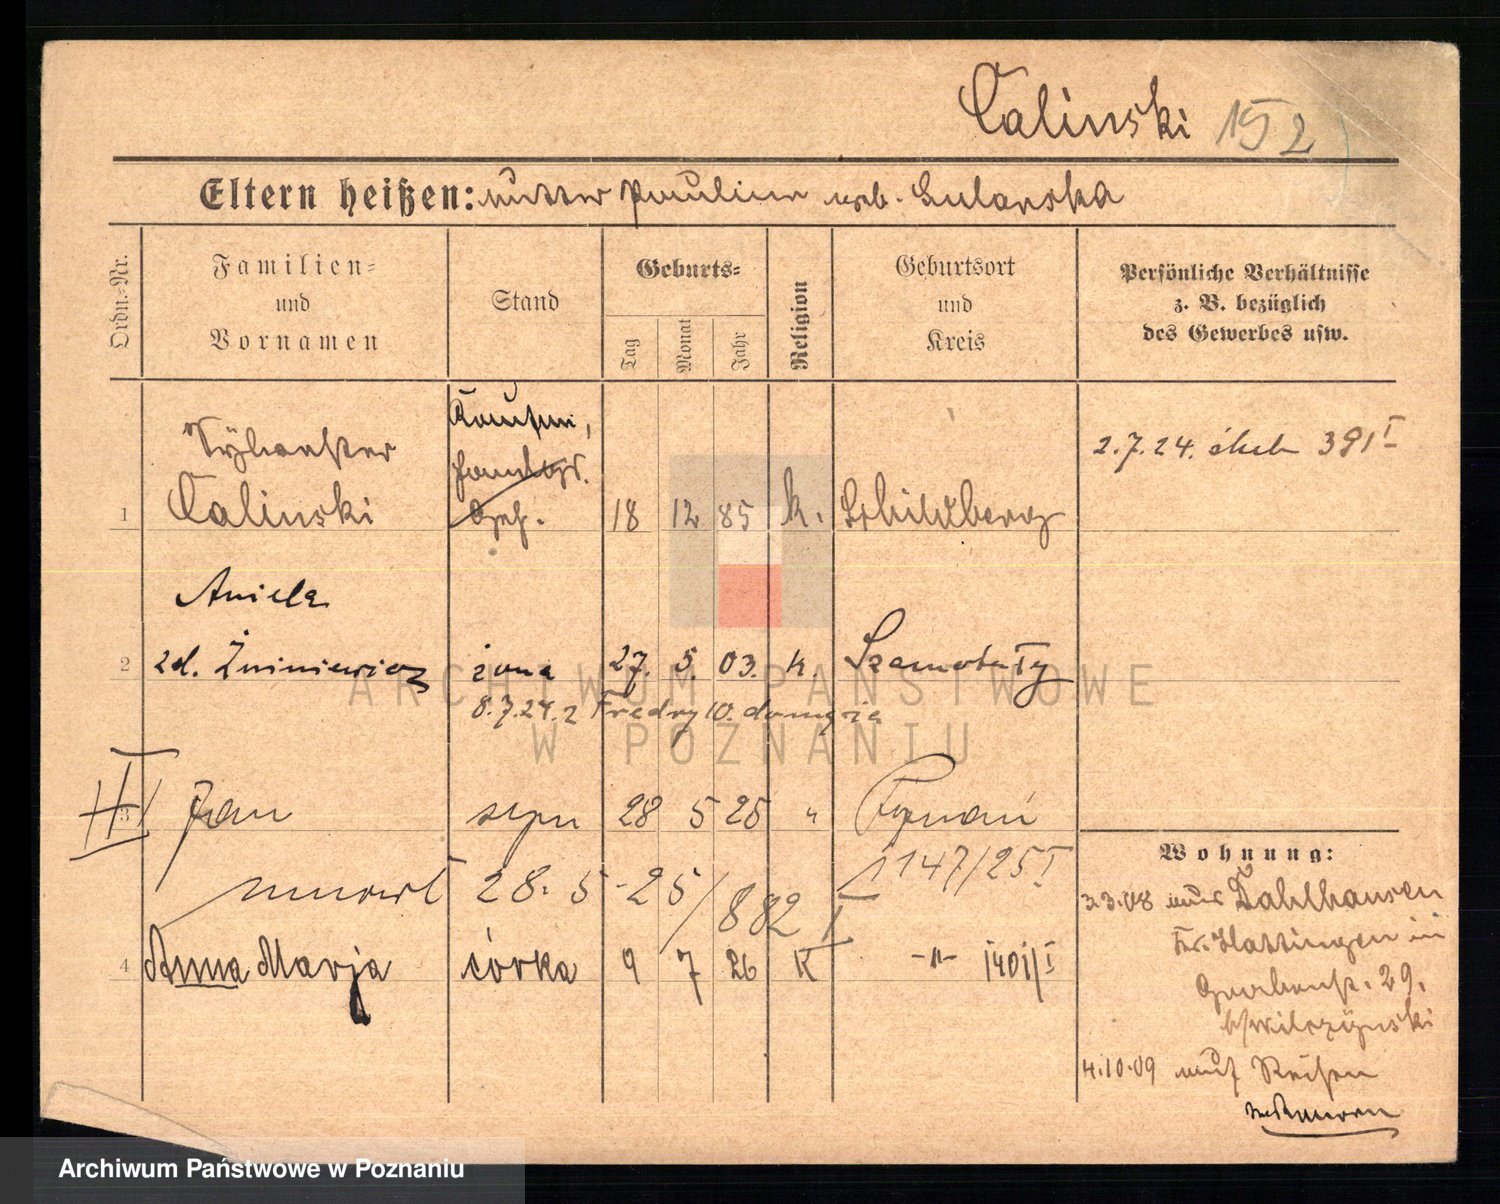 Calinski 152
Eltern heißen: Mutter Pauline geb. Gulanska
Ordn.-Nr.
Familien-
und
Vornamen
Stand
Geburts-
Tag
Monat
Jahr
Religion
Geburtsort
und
Kreis
Persönliche Verhältnisse
z. B. bezüglich
des Gewerbes usw.
Kaufm.,
Sylvester
Handlgs.
1 Calinski Geh. 18 12 85 k. Schildberg
2.7.24. 391 I
Aniela
2 zd. Żminiewicz żona 27. 5. 03. k. Szamotuły
8.7.24. z Fredry 10.
3 III Jan syn 28 5 25 " Poznań
1147/25 I
umarł 28. 5 - 25/882 I
4 Anna Marja córka 9 7 26 K -"- 1401/I
Wohnung:
3.3.08 aus Dahlhausen
Kr. Hattingen in
Grabenst. 29.
b/Wilczynski
4.10.09 auf Reisen
ARCHIWUM PAŃSTWOWE
W POZNANIU
Archiwum Państwowe w Poznaniu